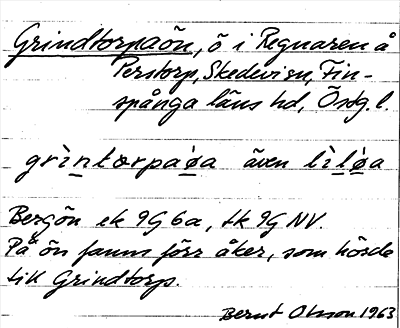 Grindtorpaön, ö i Regnaren å
Perstorp, Skedevi sn, Fin-
spånga läns hd, Ösdg. l.
grìntorpaøa även lìløa
Bergön ek 9G 6a, tk 9G NV.
På ön fanns förr åker, som hörde
till Grindtorp.
Bernt Olsson 1963